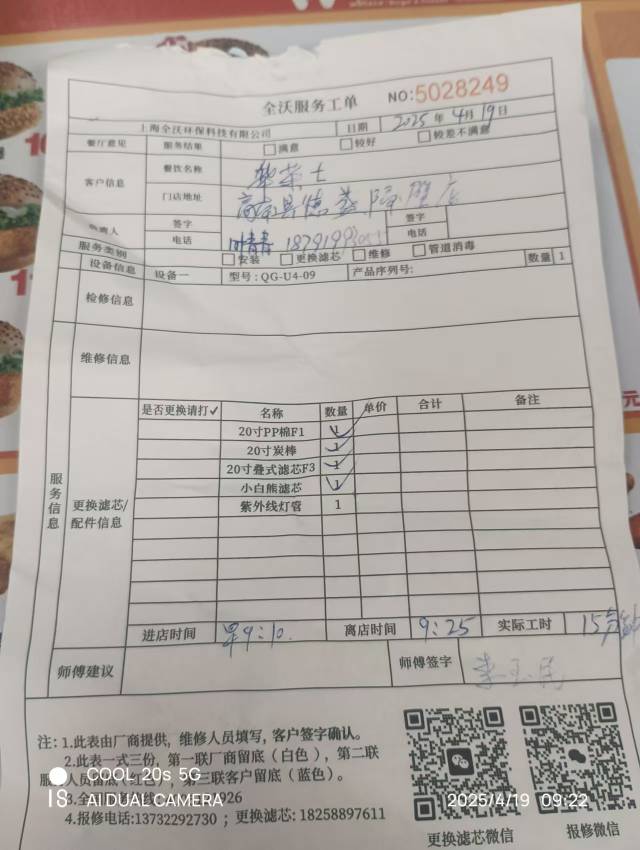 全沃服务工单 NO:5028249
上海全沃环保科技有限公司 日期 2025年4月19日
餐厅意见 服务结果 □满意 □较好 □较差不满意
客户信息 餐饮名称 华莱士
门店地址
负责人 签字 签字
电话 电话
服务类别 □安装 □更换滤芯 □维修 □管道消毒
设备信息 设备一 型号:QG-U4-09 产品序列号: 数量 1
检修信息
维修信息
服务信息
更换滤芯/配件信息
是否更换请打✓ 名称 数量 单价 合计 备注
20寸PP棉F1 1
20寸炭棒 1
20寸叠式滤芯F3 1
小白熊滤芯 1
紫外线灯管 1
进店时间 早9:10. 离店时间 9:25 实际工时 15分钟
师傅建议 师傅签字 李玉民
注:1.此表由厂商提供,维修人员填写,客户签字确认。
2.此表一式三份,第一联厂商留底(白色),第二联
服 人员留底(红色),第三联客户留底(蓝色)。
3.全 线 926
4.报修电话:13732292730;更换滤芯:18258897611
更换滤芯微信 报修微信
COOL 20s 5G
AI DUAL CAMERA
2025/4/19 09:22